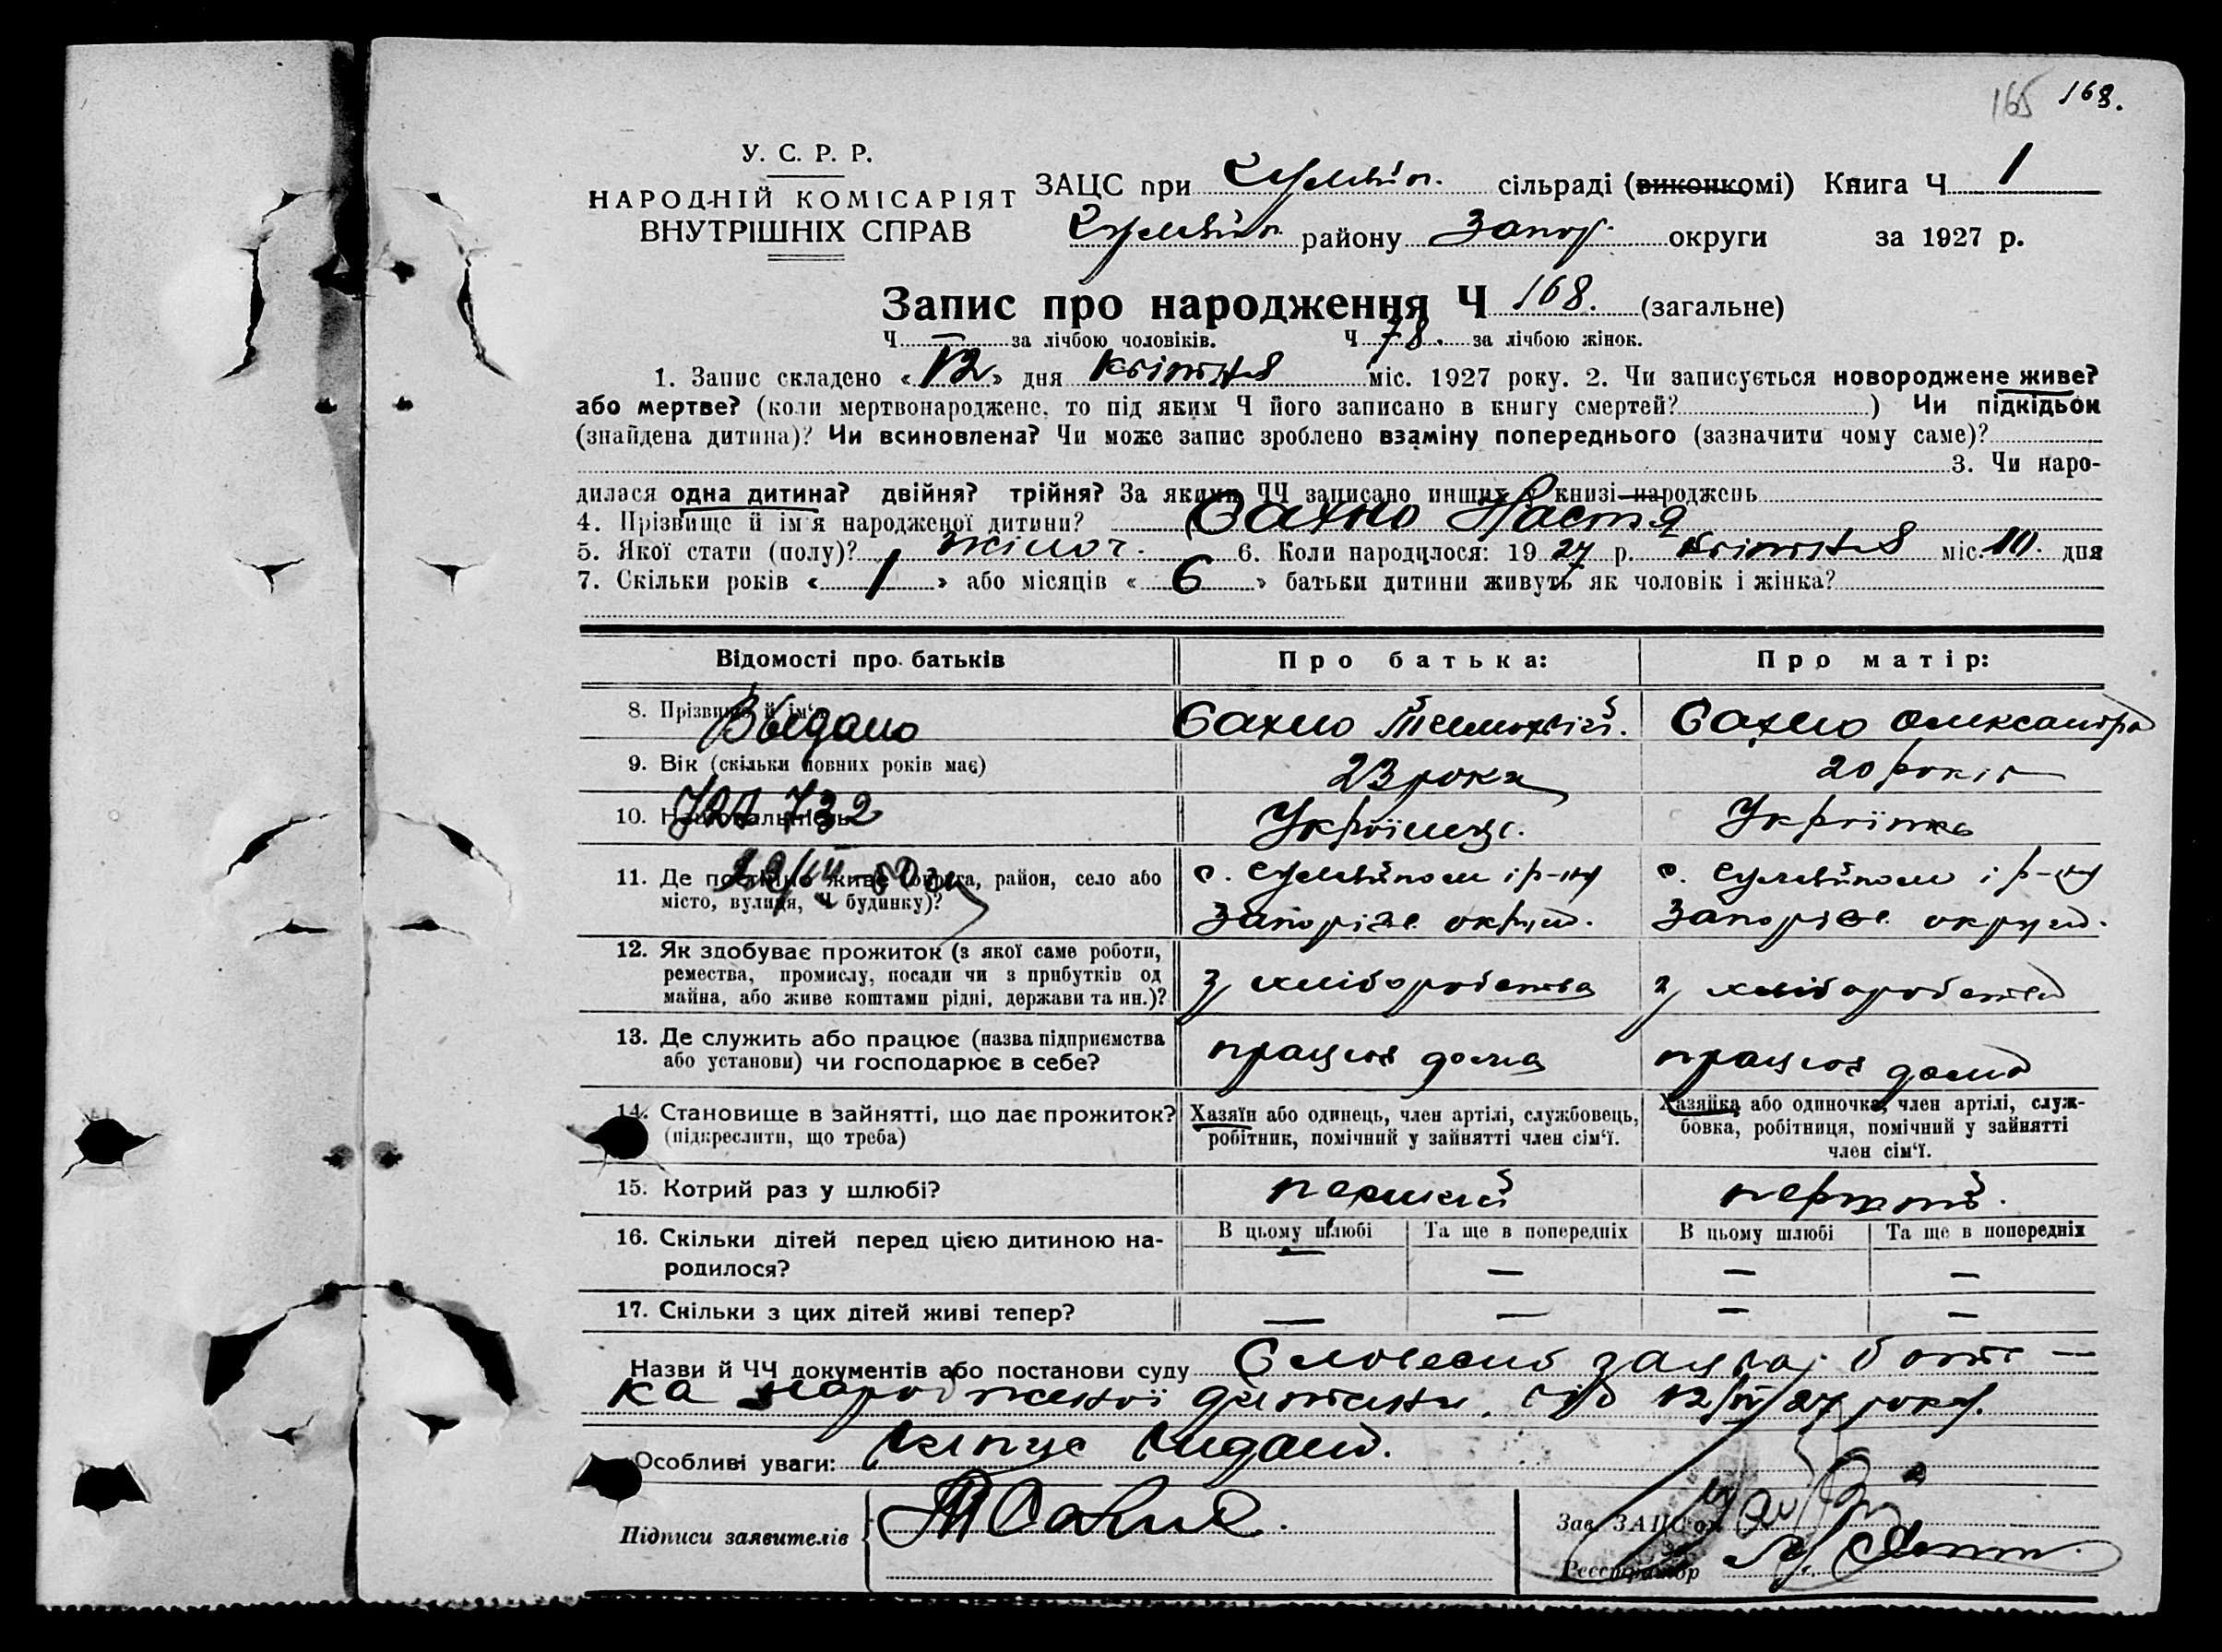 165 168.
У. С. Р. Р.
НАРОДНІЙ КОМІСАРІЯТ
ВНУТРІШНІХ СПРАВ
ЗАЦС при Гуляйпіл. сільраді (виконкомі) Книга Ч 1
Гуляйпіл. району Запор. округи за 1927 р.
Запис про народження Ч 168. (загальне)
Ч — за лічбою чоловіків. Ч 78. за лічбою жінок.
1. Запис складено «12» дня квітня міс. 1927 року. 2. Чи записується новороджене живе?
або мертве? (коли мертвонароджене, то під яким Ч його записано в книгу смертей? ) Чи підкідьок
(знайдена дитина)? Чи всиновлена? Чи може запис зроблено взаміну попереднього (зазначити чому саме)?
3. Чи наро-
дилася одна дитина? двійня? трійня? За якими ЧЧ записано инших у книзі народжень
4. Прізвище й ім'я народженої дитини? Сахно Настя
5. Якої стати (полу)? жіноч. 6. Коли народилося: 1927 р. квітня міс. 10. дня
7. Скільки років «1» або місяців «6» батьки дитини живуть як чоловік і жінка?
Відомості про батьків Про батька: Про матір:
8. Прізвище й ім'я Сахно Тимохвій. Сахно Олександра
Выдано
9. Вік (скільки повних років має) 23 роки 20 років
10. Національність Українець. Українка
732
11. Де постійно живе (округа, район, село або
місто, вулиця, Ч будинку)?
с. Гуляйполе і р-ну
Запоріж. округи.
с. Гуляйполе і р-ну
Запоріж. округи.
12. Як здобуває прожиток (з якої саме роботи,
ремества, промислу, посади чи з прибутків од
майна, або живе коштами рідні, держави та ин.)?
з хліборобства з хліборобства
13. Де служить або працює (назва підприємства
або установи) чи господарює в себе?
працює дома працює дома
14. Становище в зайнятті, що дає прожиток?
(підкреслити, що треба)
Хазяїн або одинець, член артілі, службовець,
робітник, помічний у зайнятті член сім'ї.
Хазяйка або одиночка, член артілі, служ-
бовка, робітниця, помічний у зайнятті
член сім'ї.
15. Котрий раз у шлюбі? перший перший.
16. Скільки дітей перед цією дитиною на-
родилося?
В цьому шлюбі Та ще в попередніх В цьому шлюбі Та ще в попередніх
— — — —
17. Скільки з цих дітей живі тепер? — — — —
Назви й ЧЧ документів або постанови суду Словесна заява бать-
ка народженої дитини, від 12/IV/27 року.
Особливі уваги: видано.
Підписи заявителів Т Сахно.
Зав. ЗАЦС'ом
Реєстратор